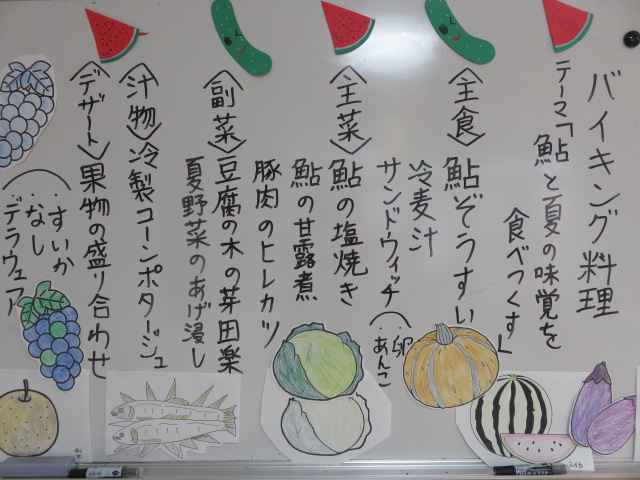 バイキング料理
テーマ「鮎と夏の味覚を
食べつくす」
〈主食〉鮎ぞうすい
冷麦汁
サンドウィッチ(・卵
・あんこ
〈主菜〉鮎の塩焼き
鮎の甘露煮
豚肉のヒレカツ
〈副菜〉豆腐の木の芽田楽
夏野菜のあげ浸し
〈汁物〉冷製コーンポタージュ
〈デザート〉果物の盛り合わせ
(・すいか
・なし
・デラウェア
スイカ